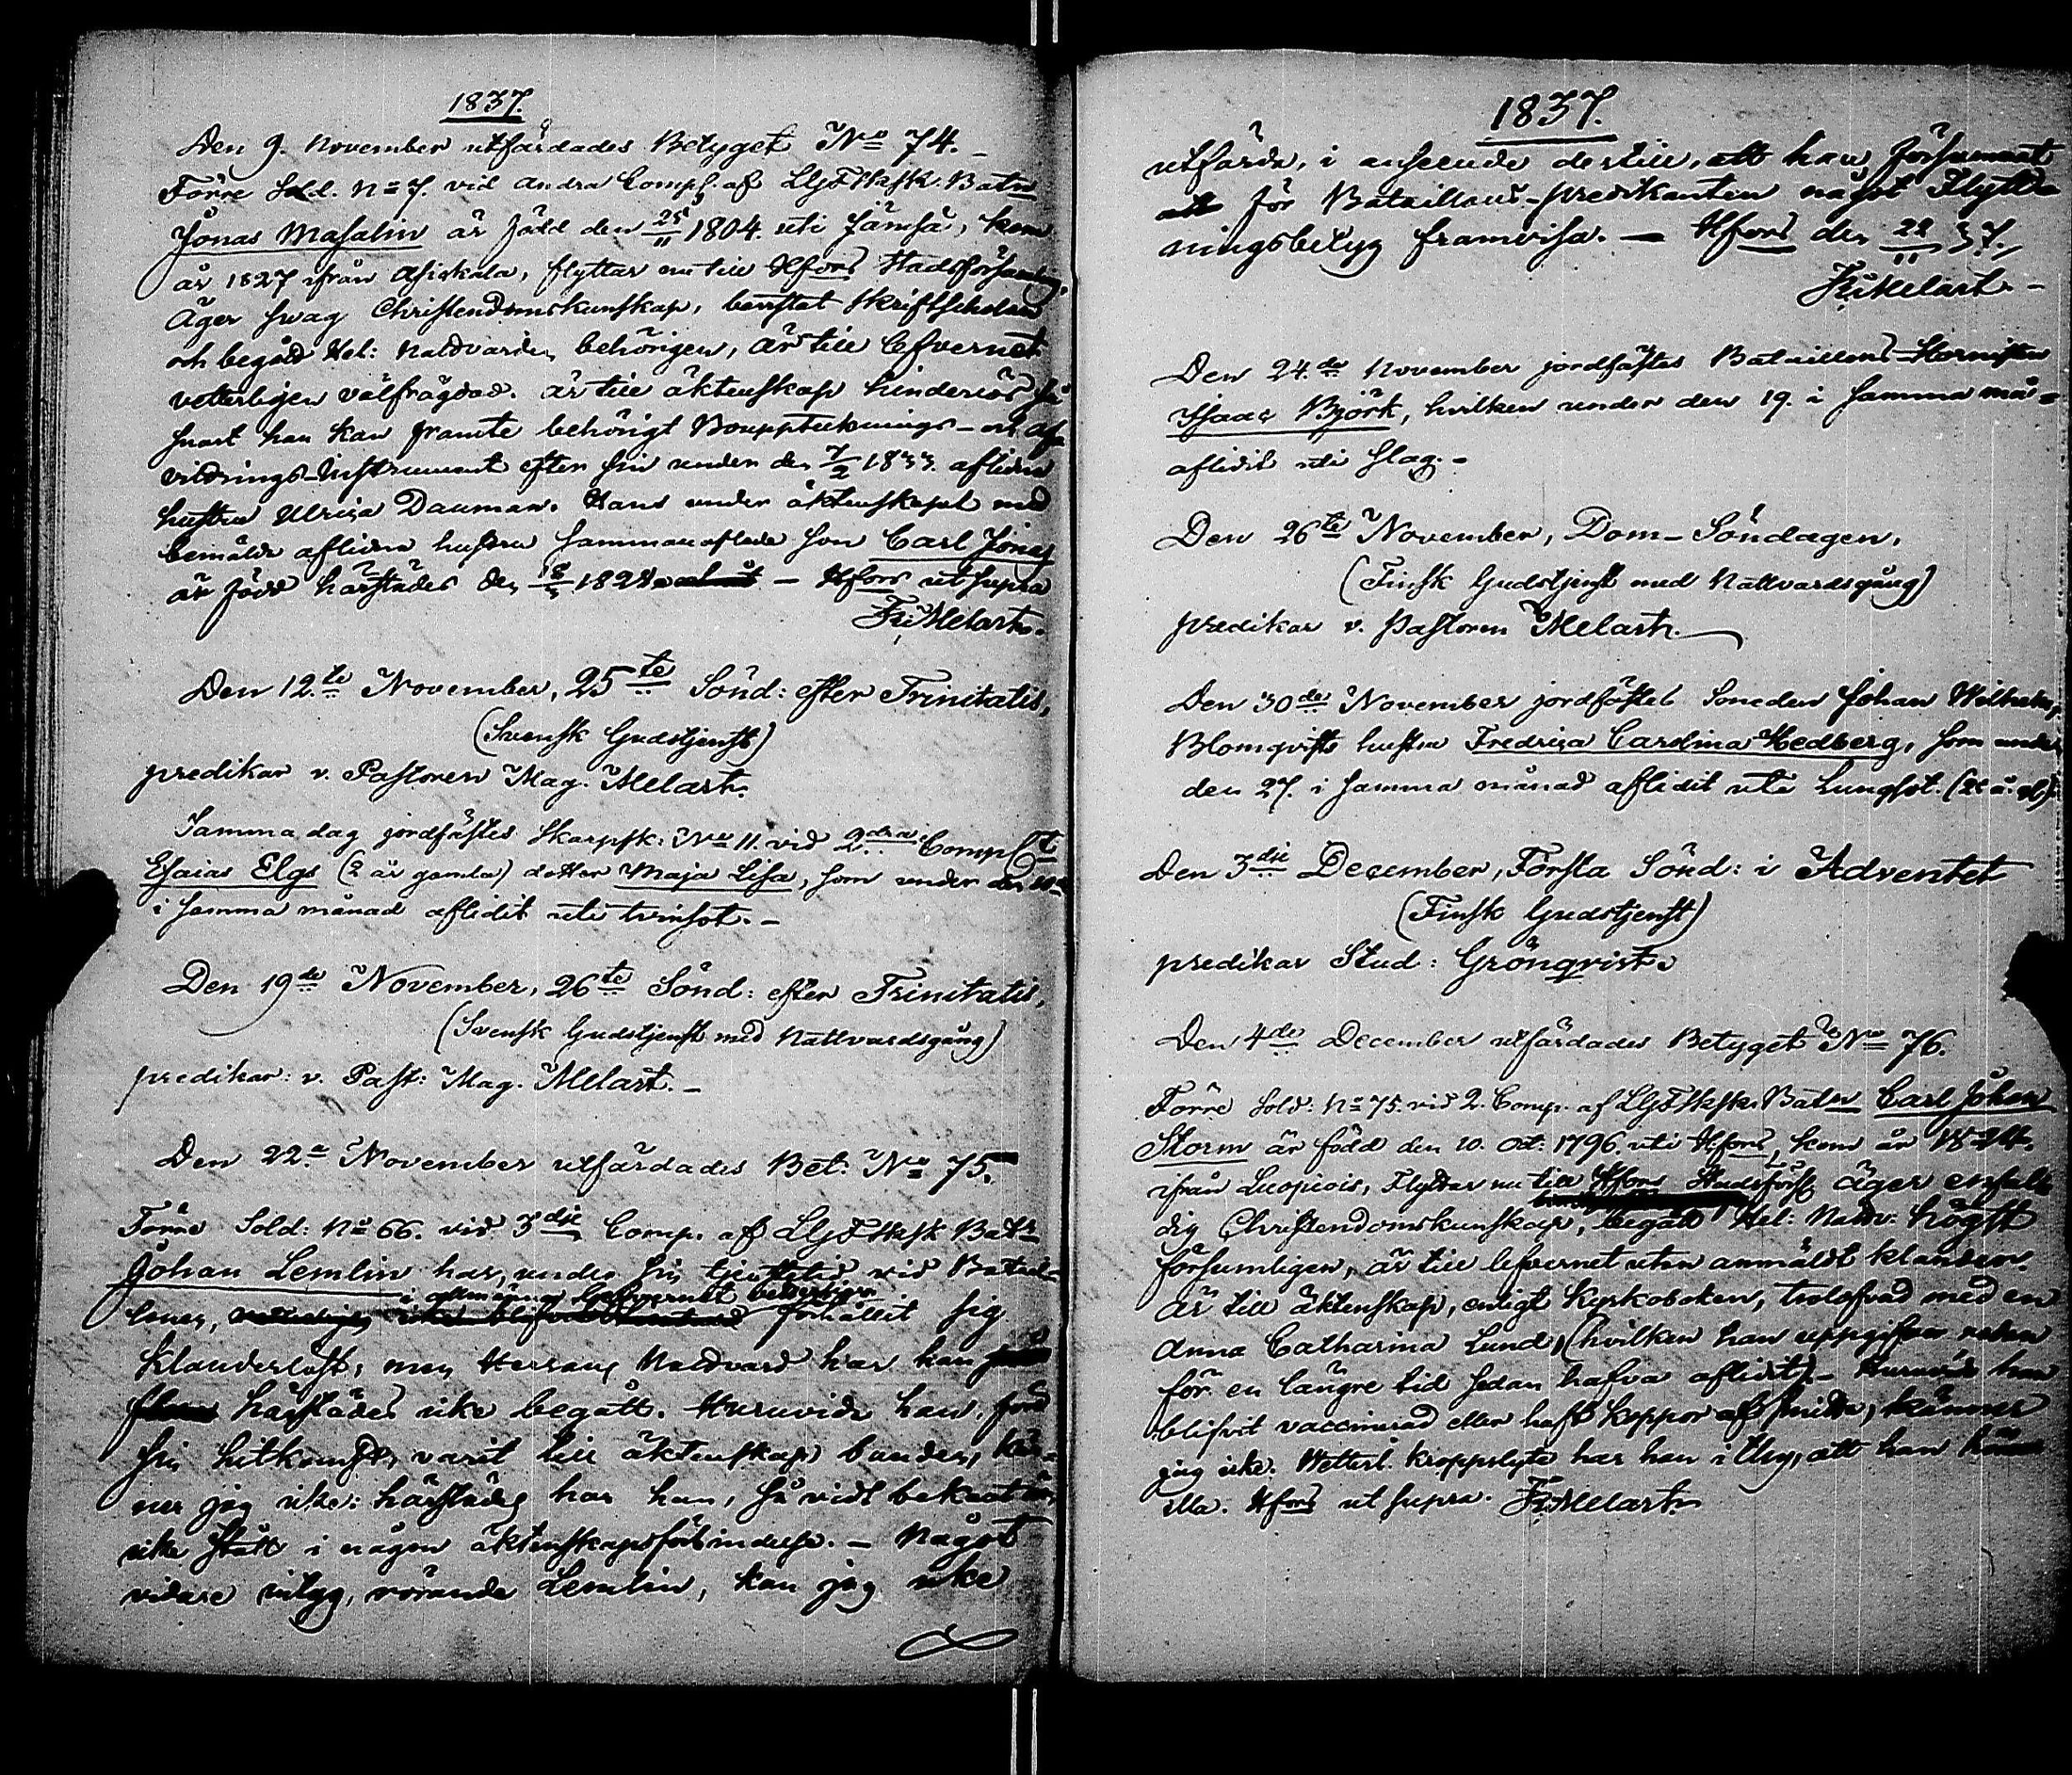 1837.
Den 9. November utfärdades Betyget No 74. –
Förre Sold. No 7. vid andra Comp. af LGFSkSk. Batn
Jonas Masalin är född den 25/11 1804. uti Jämsä, kom
år 1827 ifrån Asikkala, flyttar nu till Hfors Stadsförsamling.
Äger swag Christendomskunskap, bevistat Skriftscholan
och begått Hel: Nattvarden behörigen, är till lefvernet
vetterligen välfrägdad. är till äktenskap hinderlös så
snart han kan framte behörigt Bouppteknings- och af-
vittrings-Instrument efter sin under den 7/2 1833 aflidna
hustru Ulrica Dauman. Hans under äktenskapet med
bemälde aflidna hustru sammanaflade son Carl Jonas
är född härstädes den 1828 – Hfors ut supra
Fr: Melart.
Den 12.te November, 25te Sönd: efter Trinitatis,
(Svensk Gudstjenst)
predikar v. Pastoren Mag. Melart.
Samma dag jordfästes Skarpsk: No 11. vid 2dra Comp
Esaias Elgs (2 år gamla) dotter Maja Lisa, som under den 10de
i samma månad aflidit uti tvinsot. –
Den 19de November, 26te Sönd: efter Trinitatis,
(Svensk Gudstjenst med Nattvardsgång)
predikar: v. Past: Mag. Melart. –
Den 22a November utfärdades Bet: No 75.
Förre Sold: No 66. vid 3dje Comp. af LGFSkSk Batn
Johan Lemlin har, under sin tjenstetid vid Batail-
i allmänna lefvernet vetterligen
loner, förhållit sig
klanderlöst; men Herrans Nattvard har han
härstädes icke begått. Huruvida han, före
sin hitkomst, varit till äktenskap bunden, kän-
ner jag icke: härstädes har han, så vidt bekant är,
icke stått i någon äktenskapsförbindelse. – Något
vidare intyg, rörande Lemlin, kan jag icke
1837.
utfärda, i anseende dertill, att han försummat
att för Bataillons-predikanten något Flytt-
ningsbetyg framvisa. – Hfors den 22/11 37.
Fr: Melart. –
Den 24.de November jordfästes Bataillons-Hornisten
Isaac Björk, hvilken under den 19. i samma må-
aflidit uti slag. –
Den 26te November, Dom-Söndagen,
(Finsk Gudstjenst med Nattvardsgång)
predikar v. Pastoren Melart.
Den 30de November jordfästes Soneden Johan Wilhelm
Blomqvists hustru Fredrica Carolina Hedberg, som under
den 27. i samma månad aflidit uti Lungsot.
Den 3dje December, Första Sönd: i Adventet
(Finsk Gudstjenst)
predikar Stud: Grönqvist.
Den 4de December utfärdades Betyget No 76.
Förre Sold: No 75. vid 2. Comp. af LGFSkSk. Batn Carl Johan
Storm är född den 10. Oct: 1796. uti Hfors, kom år 1824.
ifrån Luopiois, Flyttar nu till Hfors Stadsförs, äger enfal-
dig Christendomskunskap, begått Hel: Nattv: högst
försumligen, är till lefvernet utan anmäldt klander.
är till äktenskap, enligt Kyrkoboken, trolofvad med en
Anna Catharina Lund, (hvilken han uppgifver redan
för en längre tid sedan hafva aflidit). – Huruvida han
blifvit vaccinerad eller haft koppor af smitta, känner
jag icke. Vetterl. kroppslyte har han i thy, att han
illa. Hfors ut supra. Fr: Melart.